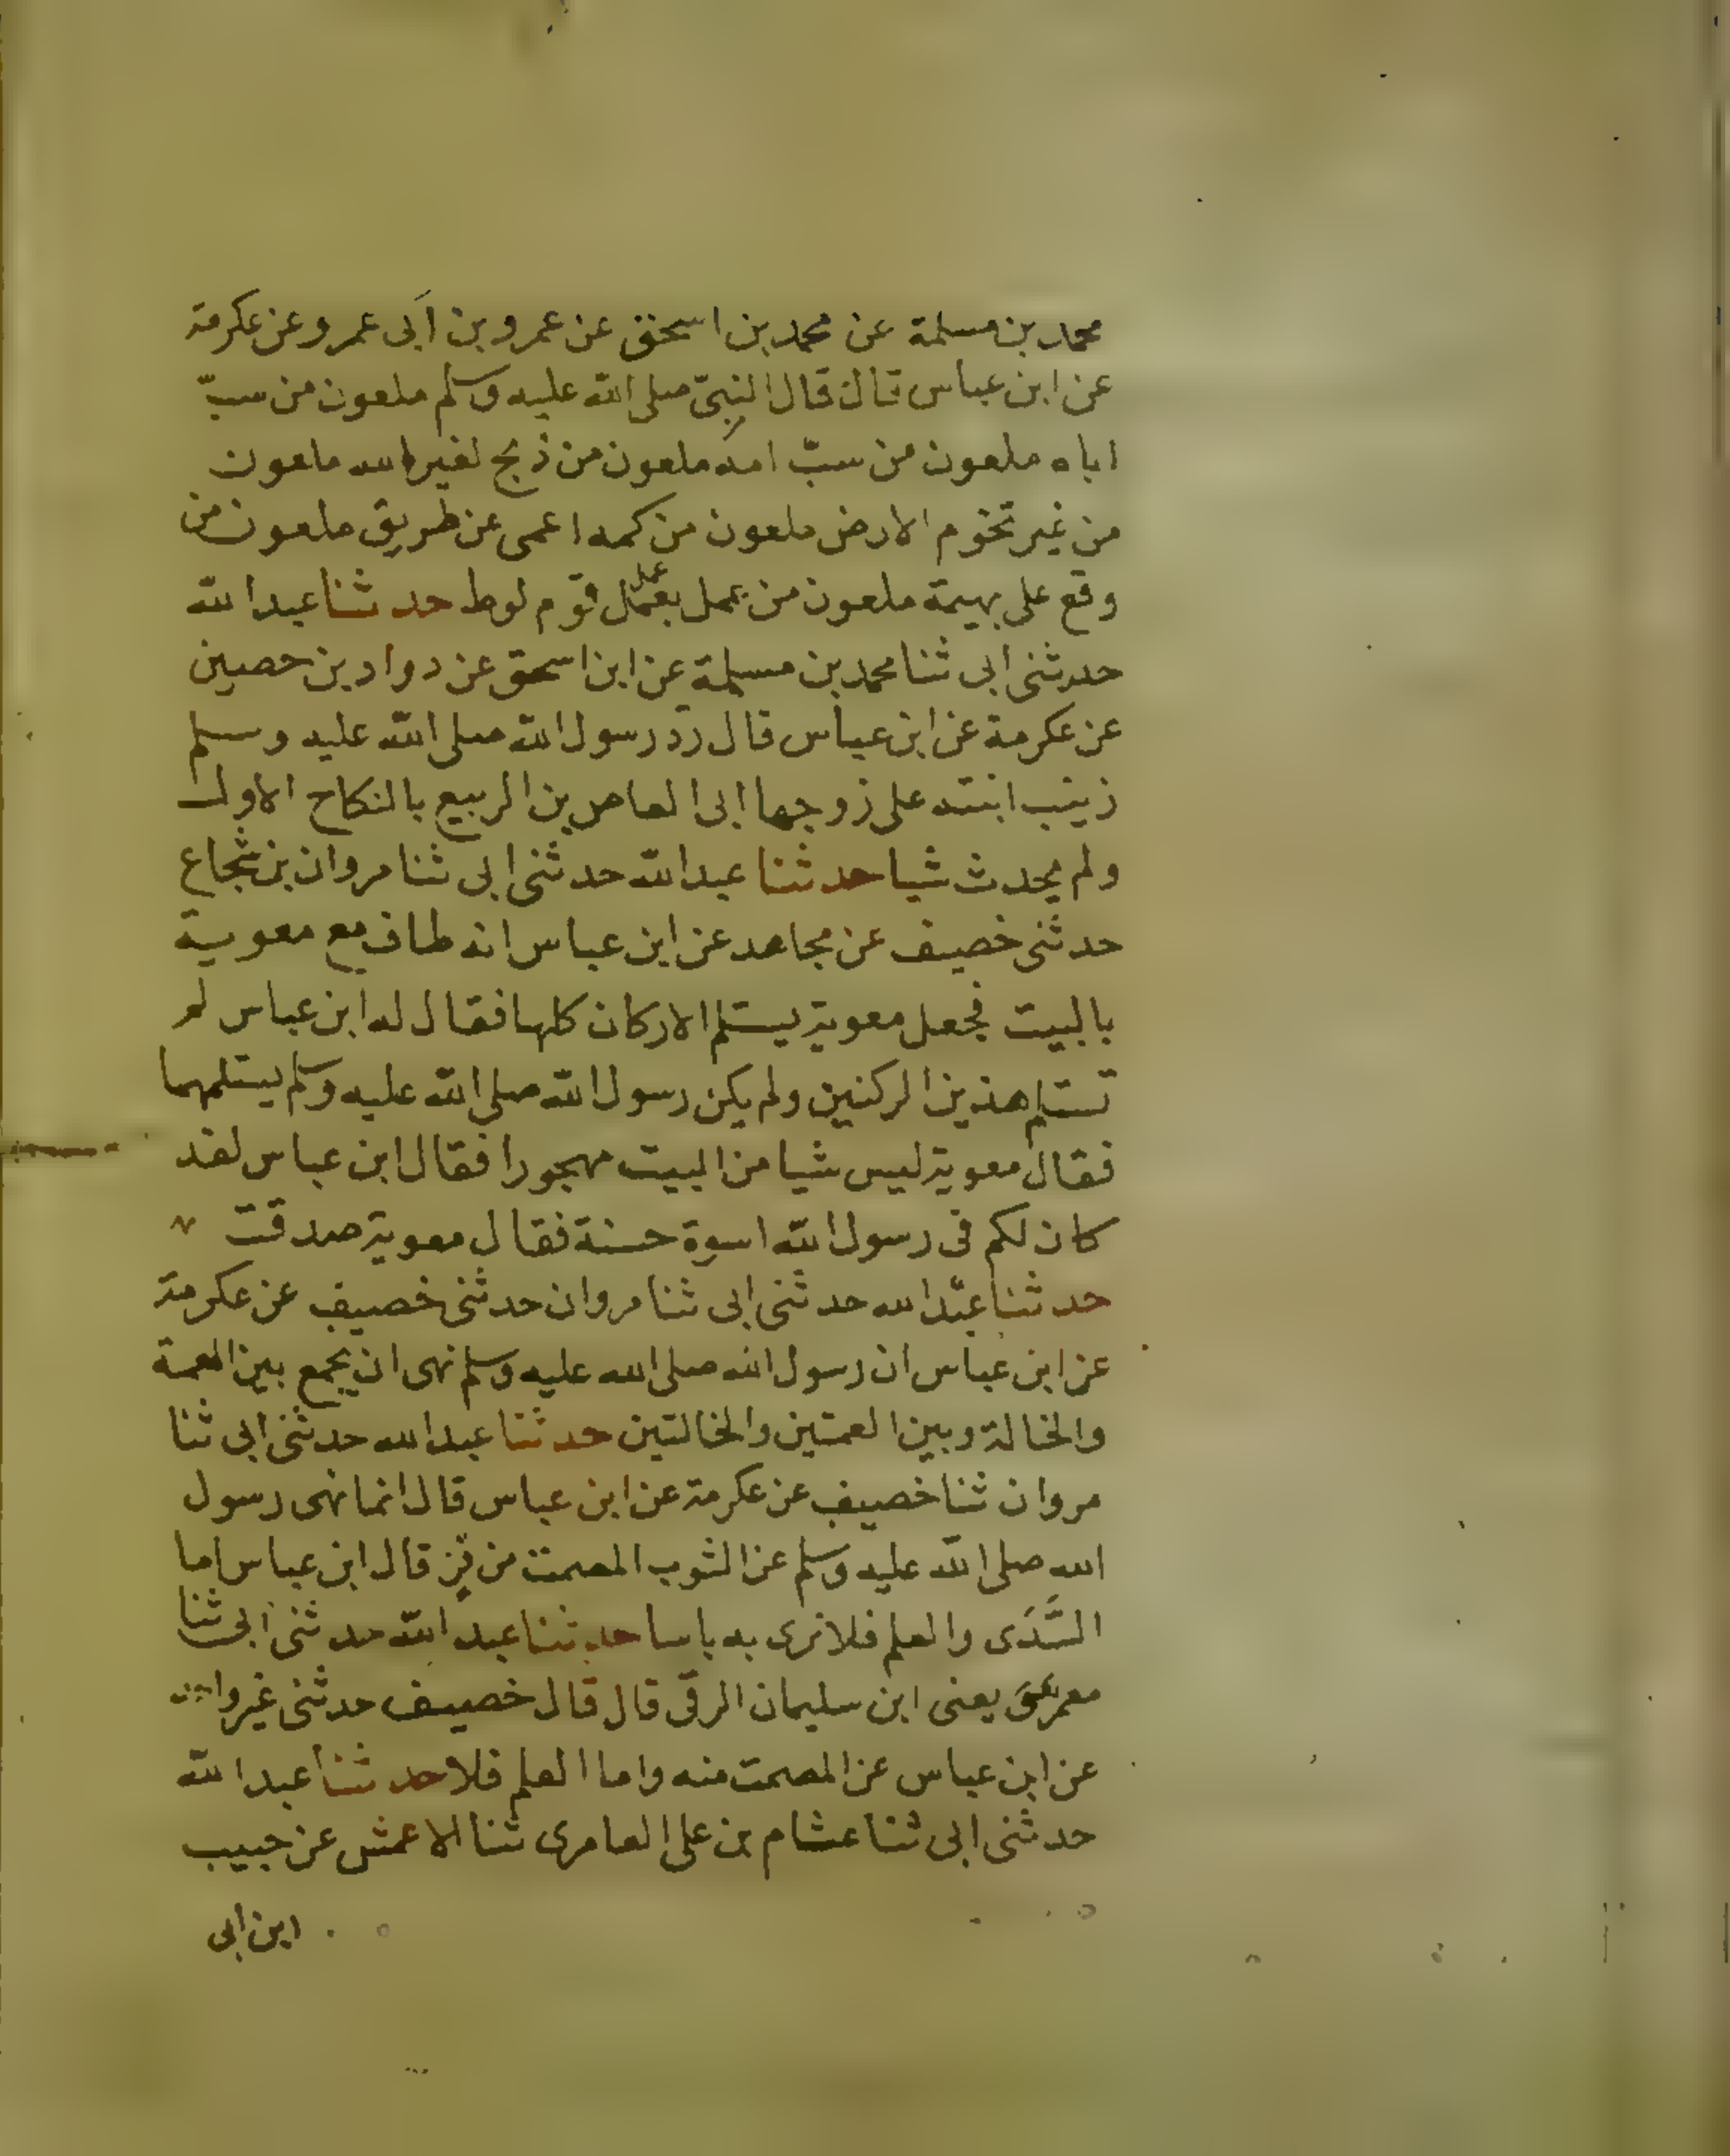 محمد بن مسلمة عن محمد بن اسحق عن عمرو بن أبى عمرو عن عكرمة
عن ابن عباس قال قال النبىّ صلى الله عليه وسلم ملعون من سبّ
اباه ملعون من سبّ امه ملعون من ذبح لغير الله ملعون
من غير تخوم الارض ملعون من كمه اعمى عن طريق ملعون من
وقع على بهيمة ملعون من عمل بعمل قوم لوط حدثنا عبد الله
حدثنى ابى ثنا محمد بن مسلمة عن ابن اسحق عن دواد بن حصين
عن عكرمة عن ابن عباس قال ردّ رسول الله صلى الله عليه وسلم
زينب ابنته على زوجها ابى العاص بن الربيع بالنكاح الاول
ولم يحدث شيا حدثنا عبد الله حدثنى ابى ثنا مروان بن شجاع
حدثنى خصيف عن مجاهد عن ابن عباس انه طاف مع معوية
بالبيت فجعل معوية يستلم الاركان كلها فقال له ابن عباس لم
تستلم هذين الركنين ولم يكن رسول الله صلى الله عليه وسلم يستلمهما
فقال معوية ليس شيا من البيت مهجورا فقال ابن عباس لقد
كان لكم فى رسول الله اسوة حسنة فقال معوية صدقت
حدثنا عبد الله حدثنى ابى ثنا مروان حدثنى خصيف عن عكرمة
عن ابن عباس ان رسول الله صلى الله عليه وسلم نهى ان يجمع بين العمة
والخالة وبين العمتين والخالتين حدثنا عبد الله حدثنى ابى ثنا
مروان ثنا خصيف عن عكرمة عن ابن عباس قال انما نهى رسول
الله صلى الله عليه وسلم عن الثوب المصمت من قز قال ابن عباس اما
السَّدَى والعلم فلا نرى به باسا حدثنا عبد الله حدثنى ابى ثنا
معمر يعنى ابن سليمان الرقى قال قال خصيف حدثنى غير واحد
عن ابن عباس عن المصمت منه واما العلم فلا حدثنا عبد الله
حدثنى ابى ثنا عشام بن على العامرى ثنا الاعمش عن حبيب
ابن ابى